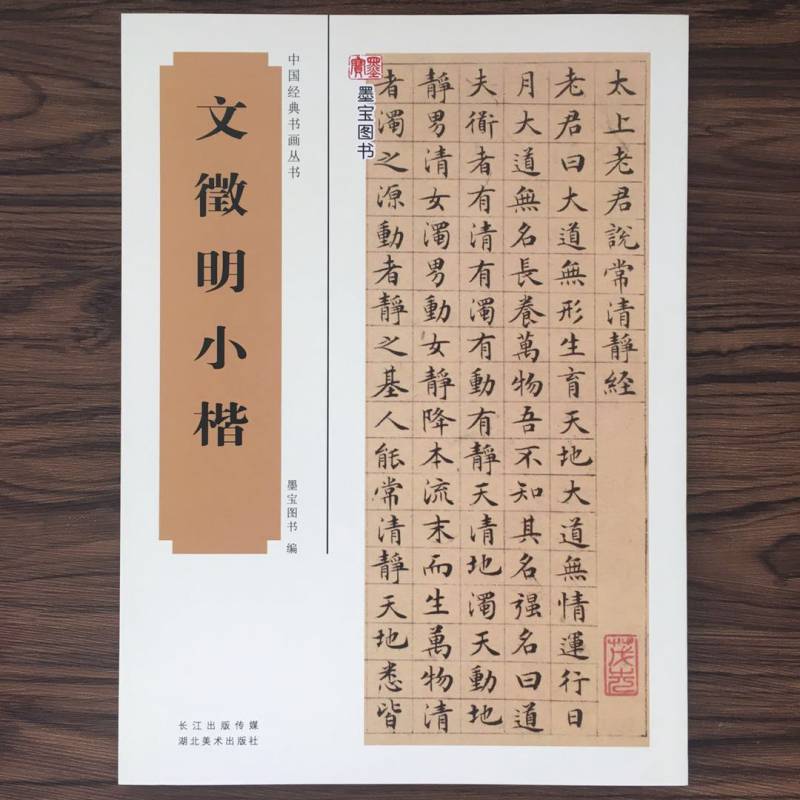 文徵明小楷
中国经典书画丛书
墨宝图书 编
长江出版传媒
湖北美术出版社
墨寶
墨宝图书
太上老君說常清靜經
老君曰大道無形生育天地大道無情運行日
月大道無名長養萬物吾不知其名强名曰道
夫衜者有清有濁有動有靜天清地濁天動地
靜男清女濁男動女靜降本流末而生萬物清
者濁之源動者靜之基人能常清靜天地悉皆